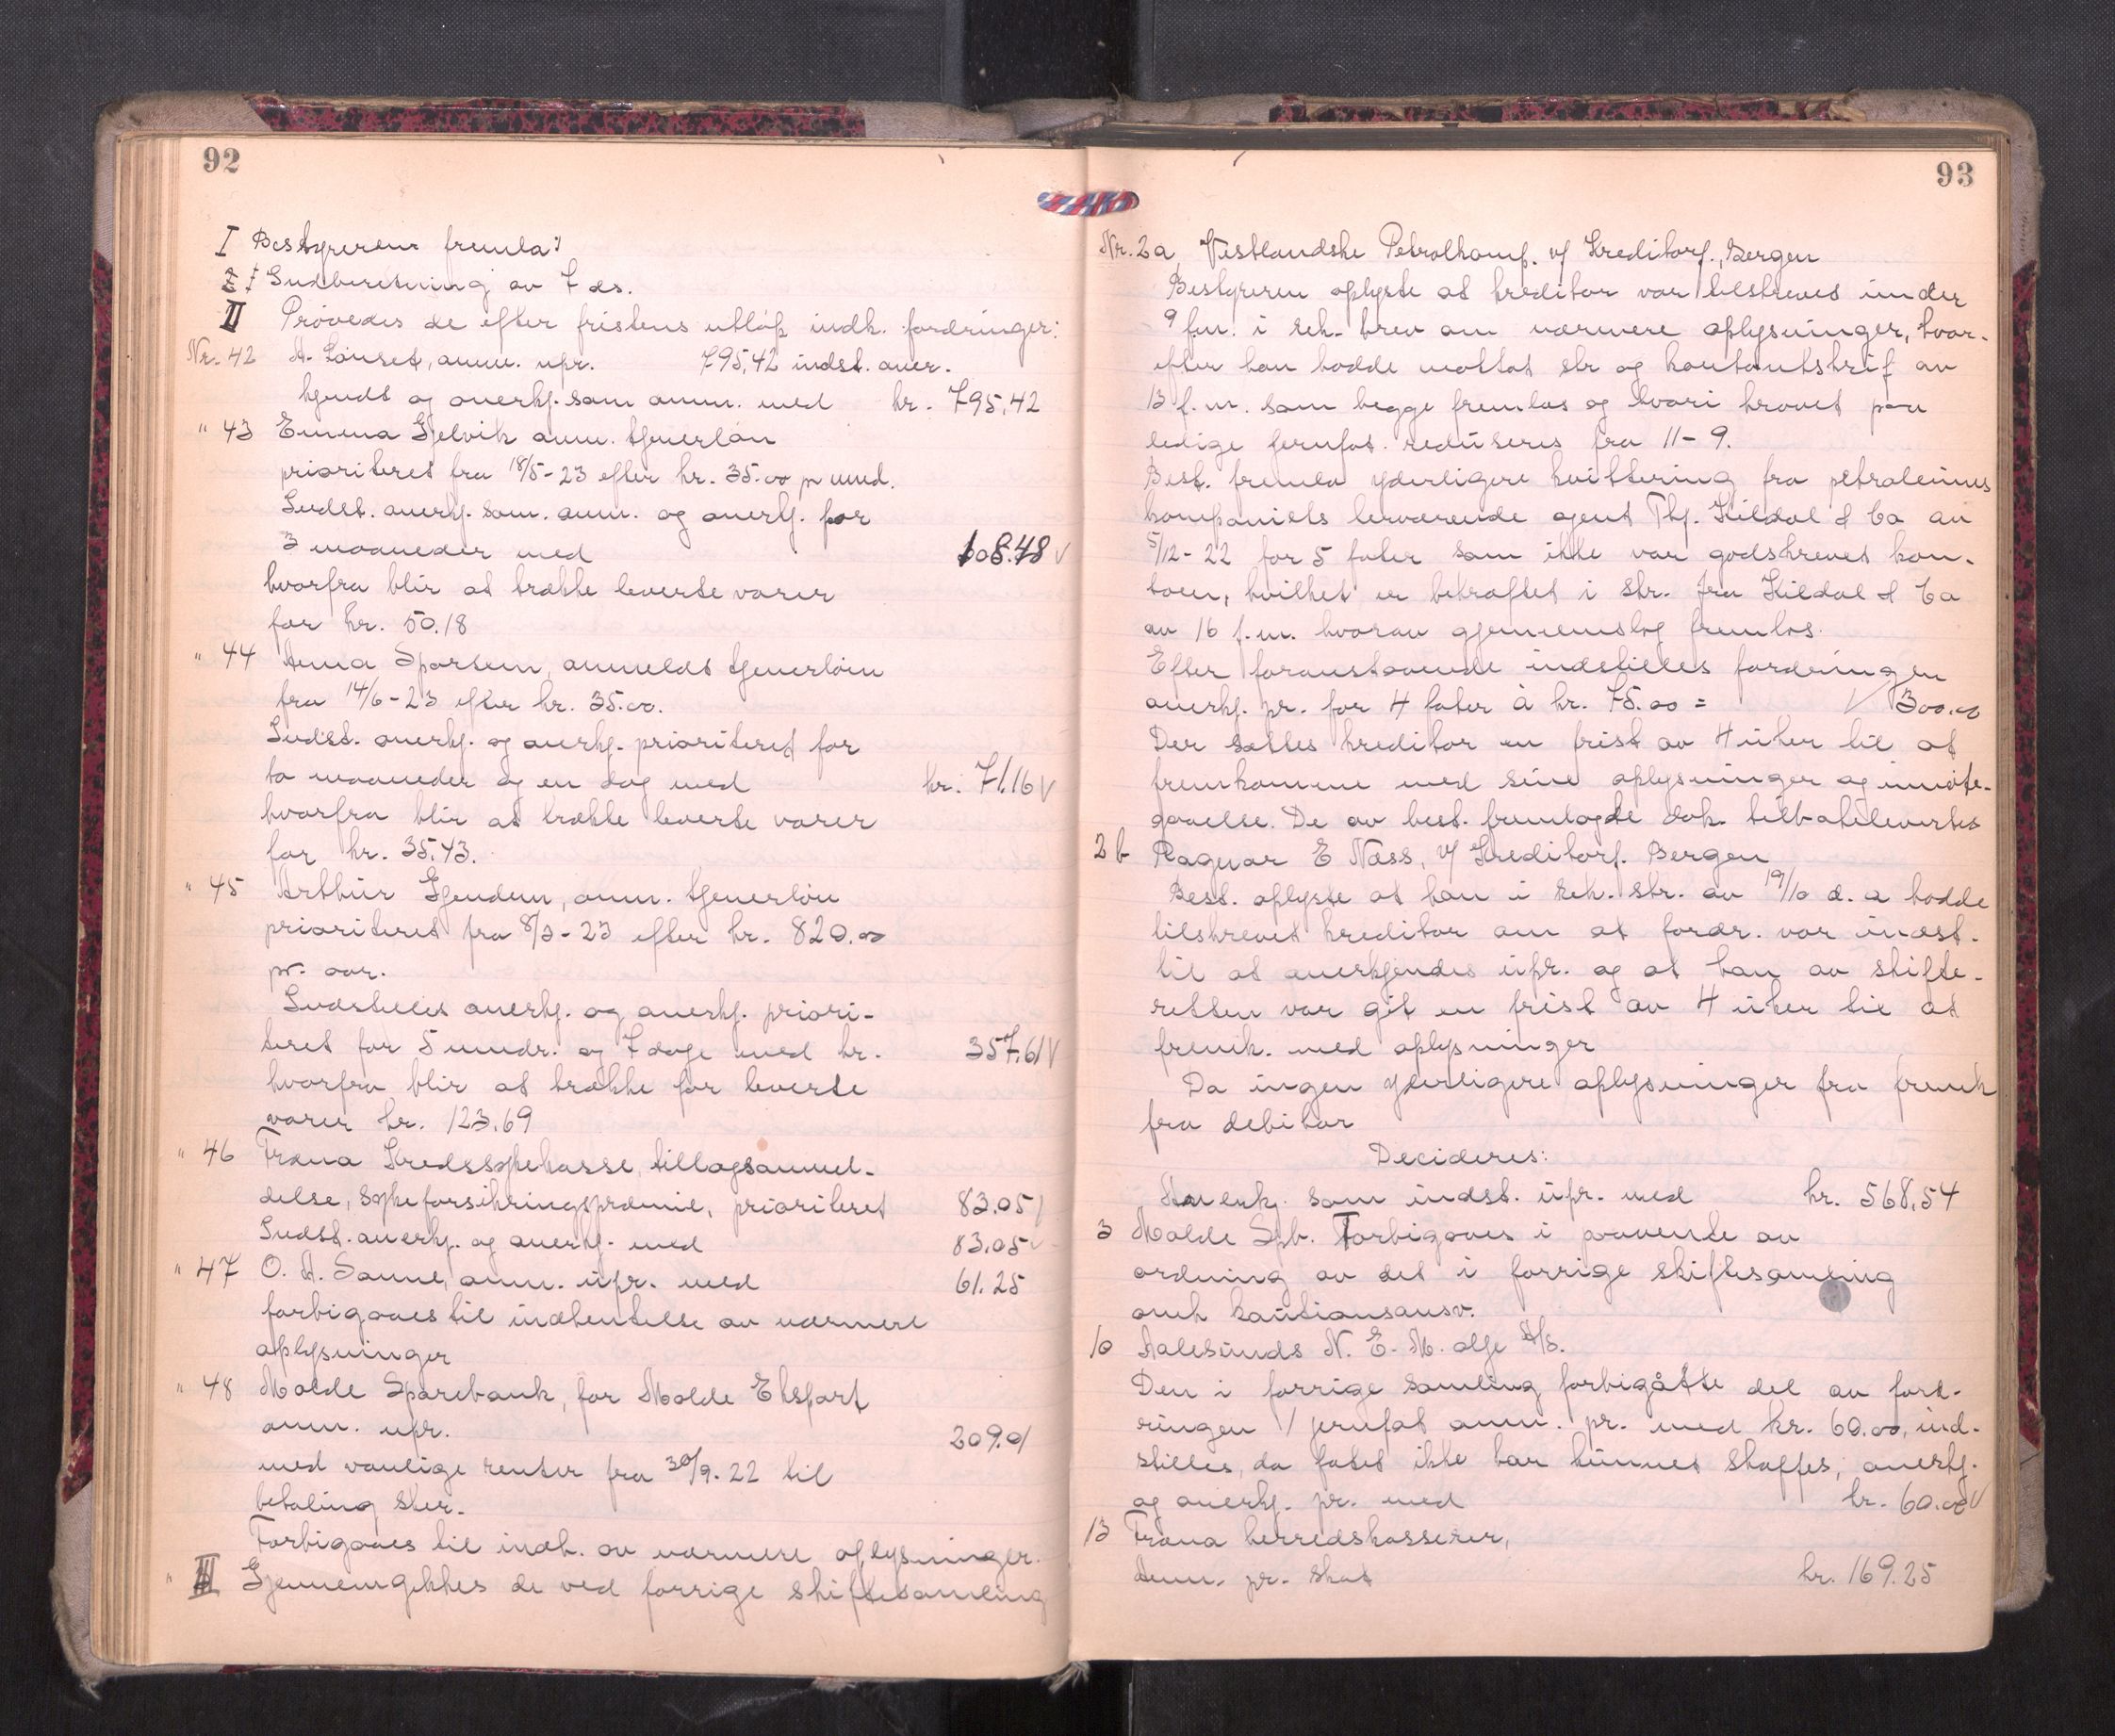 92
I Bestyreren fremla:
Indberetning av 7 ds.
II Prøvedes de efter fristens utløp indk. fordringer:
Nr. 42 A. Lønset, anm. upr. 795,42 indst. aner-
kjendt og anerkj. som anm. med kr. 795,42
" 43 Emma Gjelvik anm. tjenerløn
prioriteret fra 18/5-23 efter kr. 35.00 pr mnd.
Indst. anerkj. som. anm. og anerkj. for
3 maaneder med 108.48 √
hvorfra blir at trække leverte varer
for kr. 50.18
" 44 Anna Sporsem, anmeldt tjenerløn
fra 14/6-23 efter kr. 35.00.
Indst. anerkj. og anerkj. prioriteret for
to maaneder og en dag med kr. 71.16 √
hvorfra blir at trække leverte varer
for kr. 35,43.
" 45 Arthur Gjendem, anm. tjenerløn
prioriteret fra 8/3-23 efter kr. 820.00
pr. aar.
Indstilles anerkj. og anerkj. priori-
teret for 5 mndr. og 7 dage med kr. 357,61 √
hvorfra blir at trække for leverte
varer kr. 123,69
" 46 Fræna Kredssykekasse, tillægsanmel-
delse, sykeforsikringspræmie, prioriteret 83.05 √
Indst. anerkj. og anerkj. med 83.05 √
" 47 O. A. Sanne, anm. upr. med 61.25
forbigaaes til indhentelse av nærmere
oplysninger
" 48 Molde Sparebank, for Molde Eksport
anm. upr. 209.01
med vanlige renter fra 30/9-22 til
betaling sker.
Forbigaaes til indh. av nærmere oplysninger.
" III Gjennemgikkes de ved forrige skiftesamling
93
Nr. 2a, Vestlandske Petrolkomp. v/ Kreditorf., Bergen
Bestyreren oplyste at kreditor var tilskrevet under
9 f.m. i rek. brev om nærmere oplysninger, hvor-
efter han hadde mottat skr og kontoutskrift av
13 f.m. som begge fremlas og hvori kravet paa
ledige jernfat. reduseres fra 11-9.
Best. fremla yderligere kvittering fra petroleums
kompaniets herværende agent Thj. Kildal & Co av
5/12-22 for 5 fater som ikke var godskrevet kon-
toen, hvilket er bekræftet i skr. fra Kildal & Co
av 16 f.m. hvorav gjennemslag fremlas.
Efter foranstaaende indstilles fordringen
anerkj. pr. for 4 fater à kr. 75.00 = √ 300.00
Der sættes kreditor en frist av 4 uker til at
fremkomme med sine oplysninger og imøte-
gaaelse. De av best. fremlagte dok. tilbakelevertes
2 b Ragnar E Næss, v/ Kreditorf. Bergen
Best. oplyste at han i rek. skr. av 19/10 d. a hadde
tilskrevet kreditor om at fordr. var indst.
til at anerkjendes upr. og at han av skifte-
retten var git en frist av 4 uker til at
fremk. med oplysninger
Da ingen yderligere oplysninger fra fremk
fra debitor
Decideres:
Anerkj. som indst. upr. med kr. 568,54
3 Molde Spb. Forbigaaes i paavente av
ordning av det i forrige skiftesamling
omh kautionsansv.
10 Aalesunds N. E. M. olje A/S.
Den i forrige samling forbigåtte del av ford-
ringen 1 jernfat anm. pr. med kr. 60.00, ind-
stilles, da fatet ikke har kunnet skaffes, anerkj.
og anerkj. pr. med kr. 60.00 √
13 Fræna herredskasserer,
Anm. pr. skat kr. 169.25